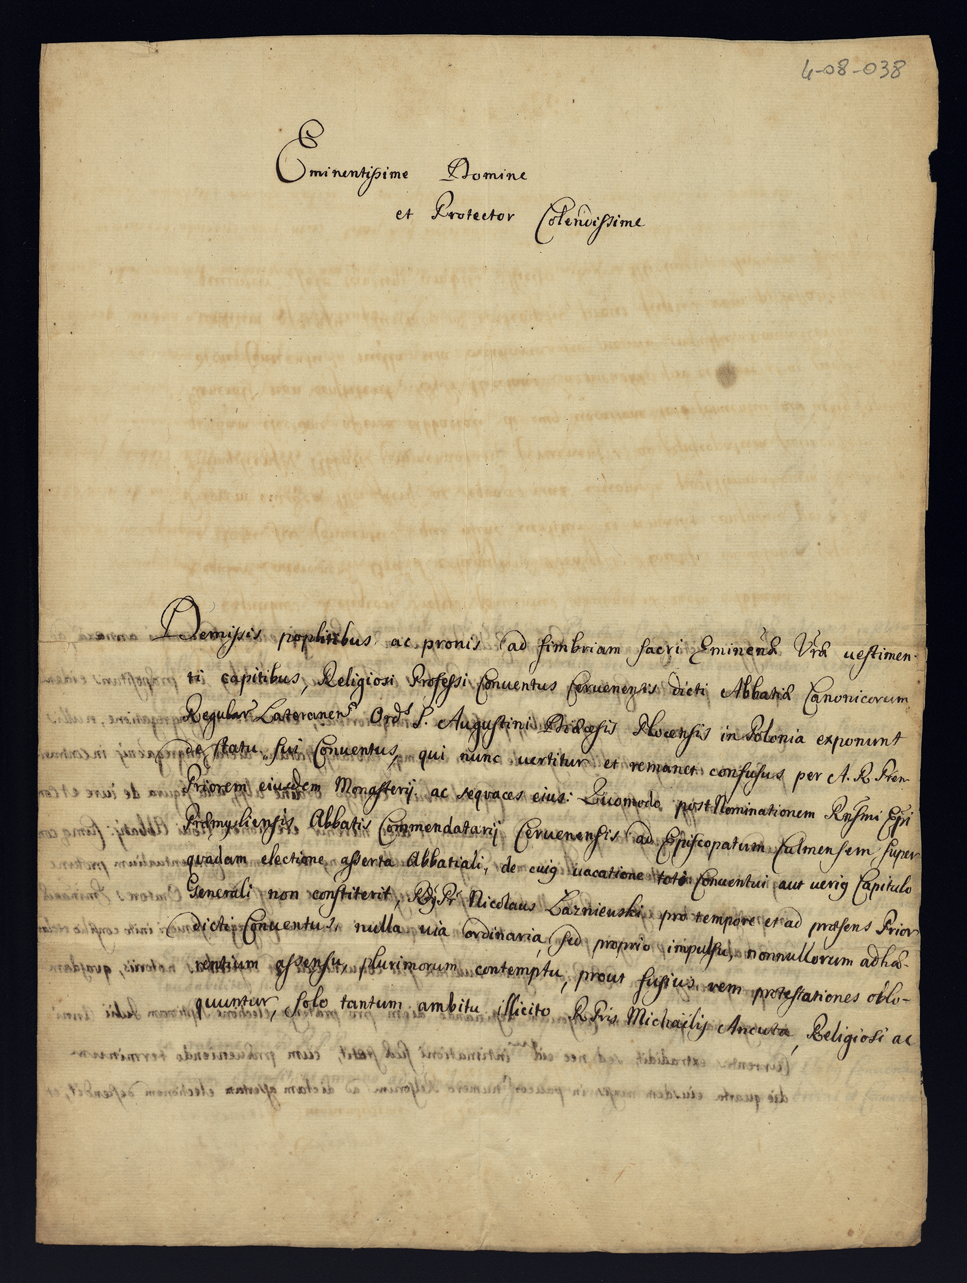 4-08-038
Eminentissime Domine
et Protector Colendissime
Demissis poplitibus ac pronis ad fimbriam sacri Eminentæ Vræ uestimen-
ti capitibus, Religiosi Professi Conuentus Ceruenensis dicti Abbatiæ Canonicorum
Regular Lateranens Ord. S. Augustini Diœcesis Plocensis in Polonia exponunt
de statu sui Conuentus, qui nunc uertitur et remanet confusus per A. R. Pren
Priorem eiusdem Monasterij ac sequaces eius: Quomodo post Nominationem Rnssmi Epi
Præmysliensis, Abbatis Commendatarij Ceruenensis ad Episcopatum Culmensem super
quadam electione asserta Abbatiali, de cuig uacatione toti Conuentui aut uerig Capitulo
Generali non constiterit, Pr Nicolaus Lazniewski pro tempore et ad præsens Prior
dicti Conuentus, nulla uia ordinaria, sed proprio impulsu, nonnullorum adhæ-
rentium assensu, plurimorum contemptu, prout fusius rem protestationes oblo-
quuntur, solo tantum ambitu illicito R. Pris Michaëlis Ancuta, Religiosi ac